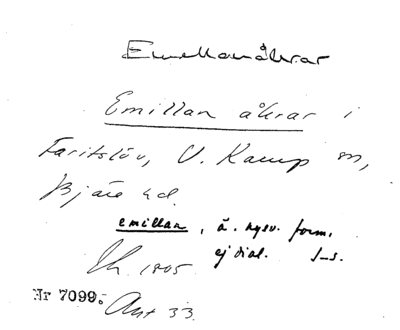 Emellanåkrar
Emillan åkrar i
Faritslöv, V. Karup sn,
Bjäre hd.
emillan, ä. nysv. form,
ej dial. J-s.
1805
Nr 7099.
Ant 33.